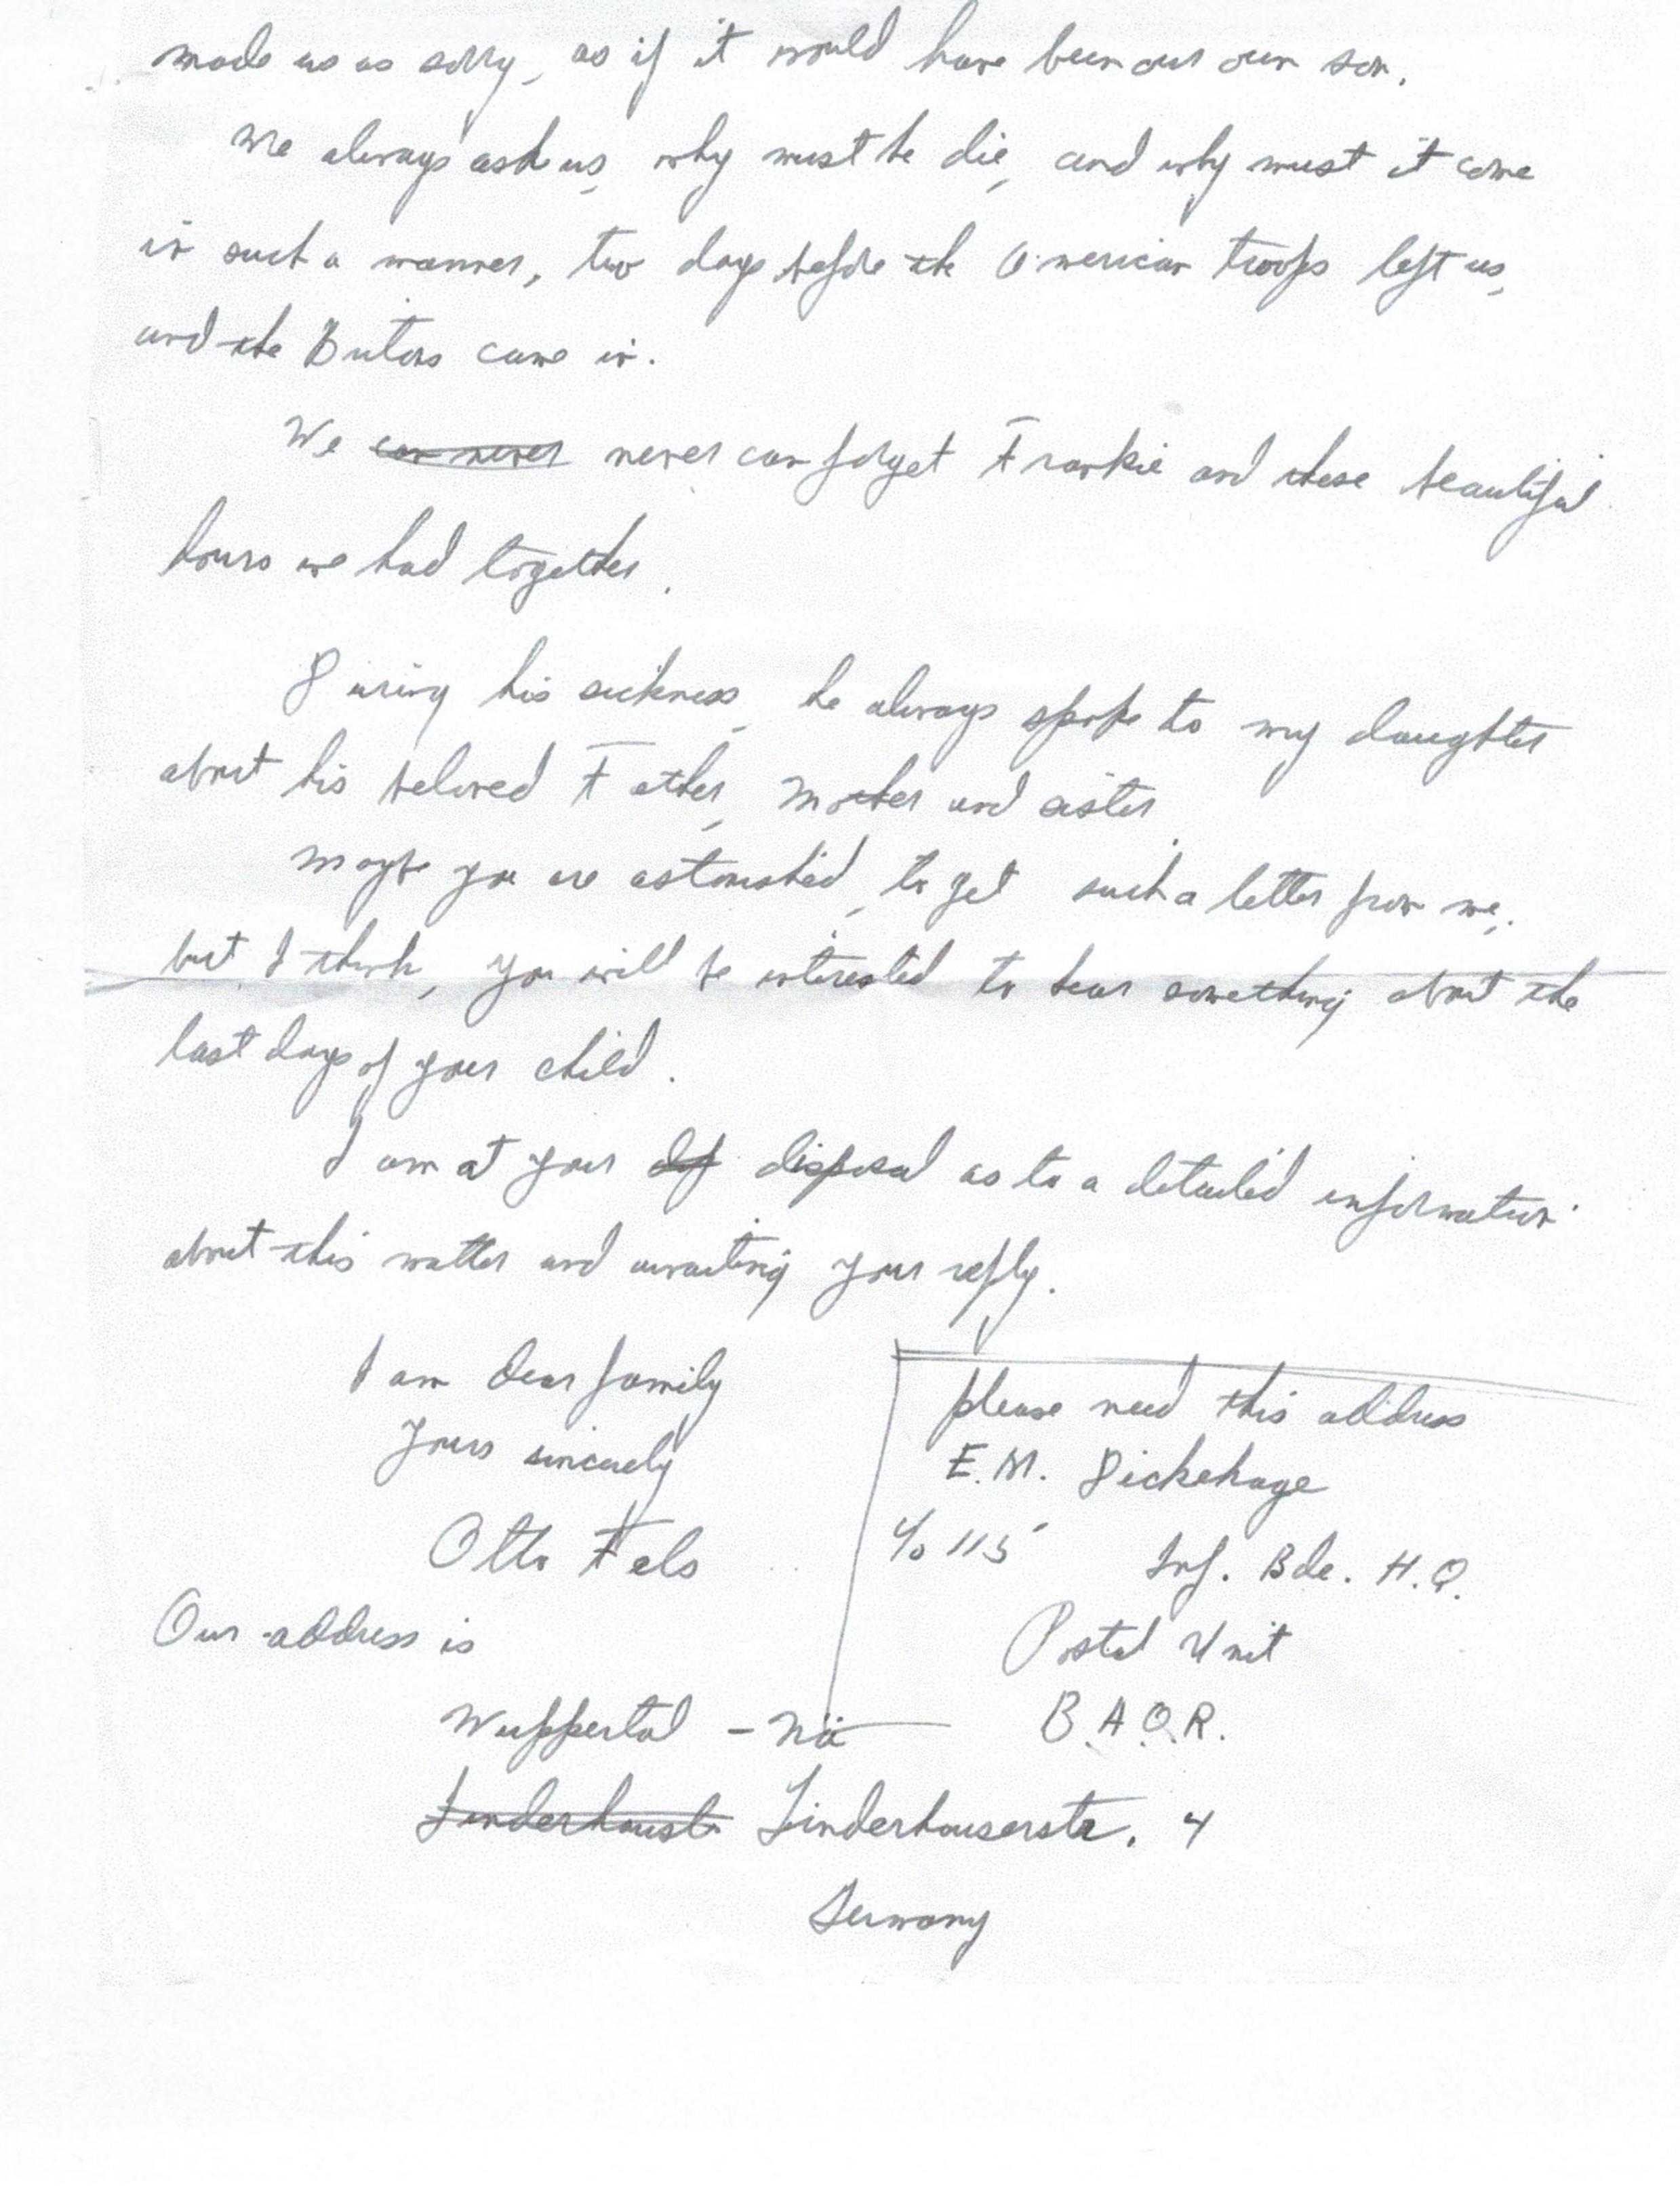 made us as sorry, as if it would have been our own son.
We always ask us, why must he die, and why must it come
in such a manner, two days before the American troops left us,
and the Britons came in.
We can never never can forget Frankie and these beautiful
hours we had together.
During his sickness, he always spoke to my daughter
about his beloved Father, Mother and sister.
Maybe you are astonished, to get such a letter from me,
but I think, you will be interested to hear something about the
last days of your child.
I am at your disposal as to a detailed information
about this matter and awaiting your reply.
I am dear family
Yours sincerely
Otto Fels
Our address is
Wuppertal - Nä
Linderhauserstr. 4
Germany
please need this address
E.M. Dickehage
c/o 115 Inf. Bde. H.Q.
Postal Unit
B.A.O.R.